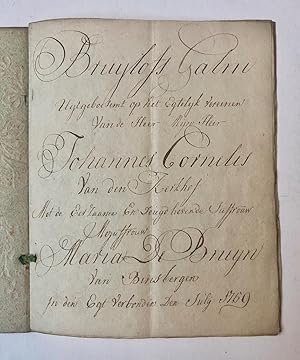 Bruylofs Galm
Uytgeboesemt op het Egtelyk Vereenen
Van de Heer Mijn Heer
Johannes Cornelis
Van den Kerkhof
Met de Eerzaame En Deugdlievende Juffrouw
Mejuffrouw
Maria De Bruyn
Van Binsbergen
In den Egt Verbonden Den July 1769